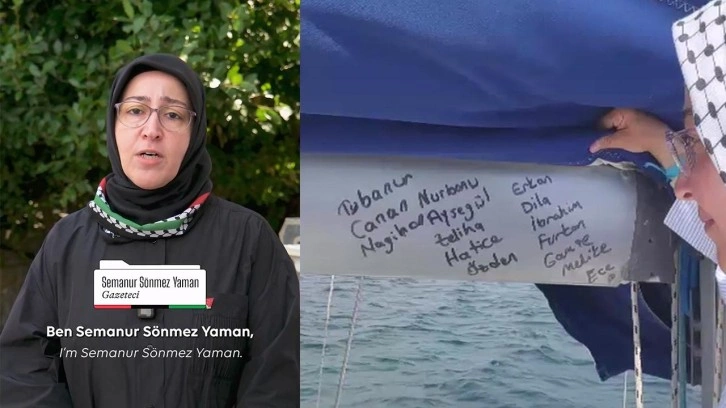 Semanur Sönmez Yaman
Gazeteci
Ben Semanur Sönmez Yaman,
I'm Semanur Sönmez Yaman.
Tubanur
Canan Nurbanu
Nagihan Ayşegül
Zeliha
Hatice
Özden
Erkan
Dila
İbrahim
Furkan
Gamze
Melike
Ece